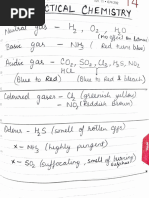 14
PRACTICAL CHEMISTRY
Neutral gas - H₂, O₂, H₂O
(no effect on litmus)
Basic gas - NH₃ (Red turns blue)
Acidic gas - CO₂, SO₂, Cl₂, H₂S, NO₂
HCl
(Blue to Red) (Blue to Red & bleach)
Coloured gases - Cl₂ (greenish yellow)
- NO₂ (Reddish Brown)
Odour - H₂S (smell of rotten eggs)
x - NH₃ (highly pungent)
x - SO₂ (suffocating, smell of burning